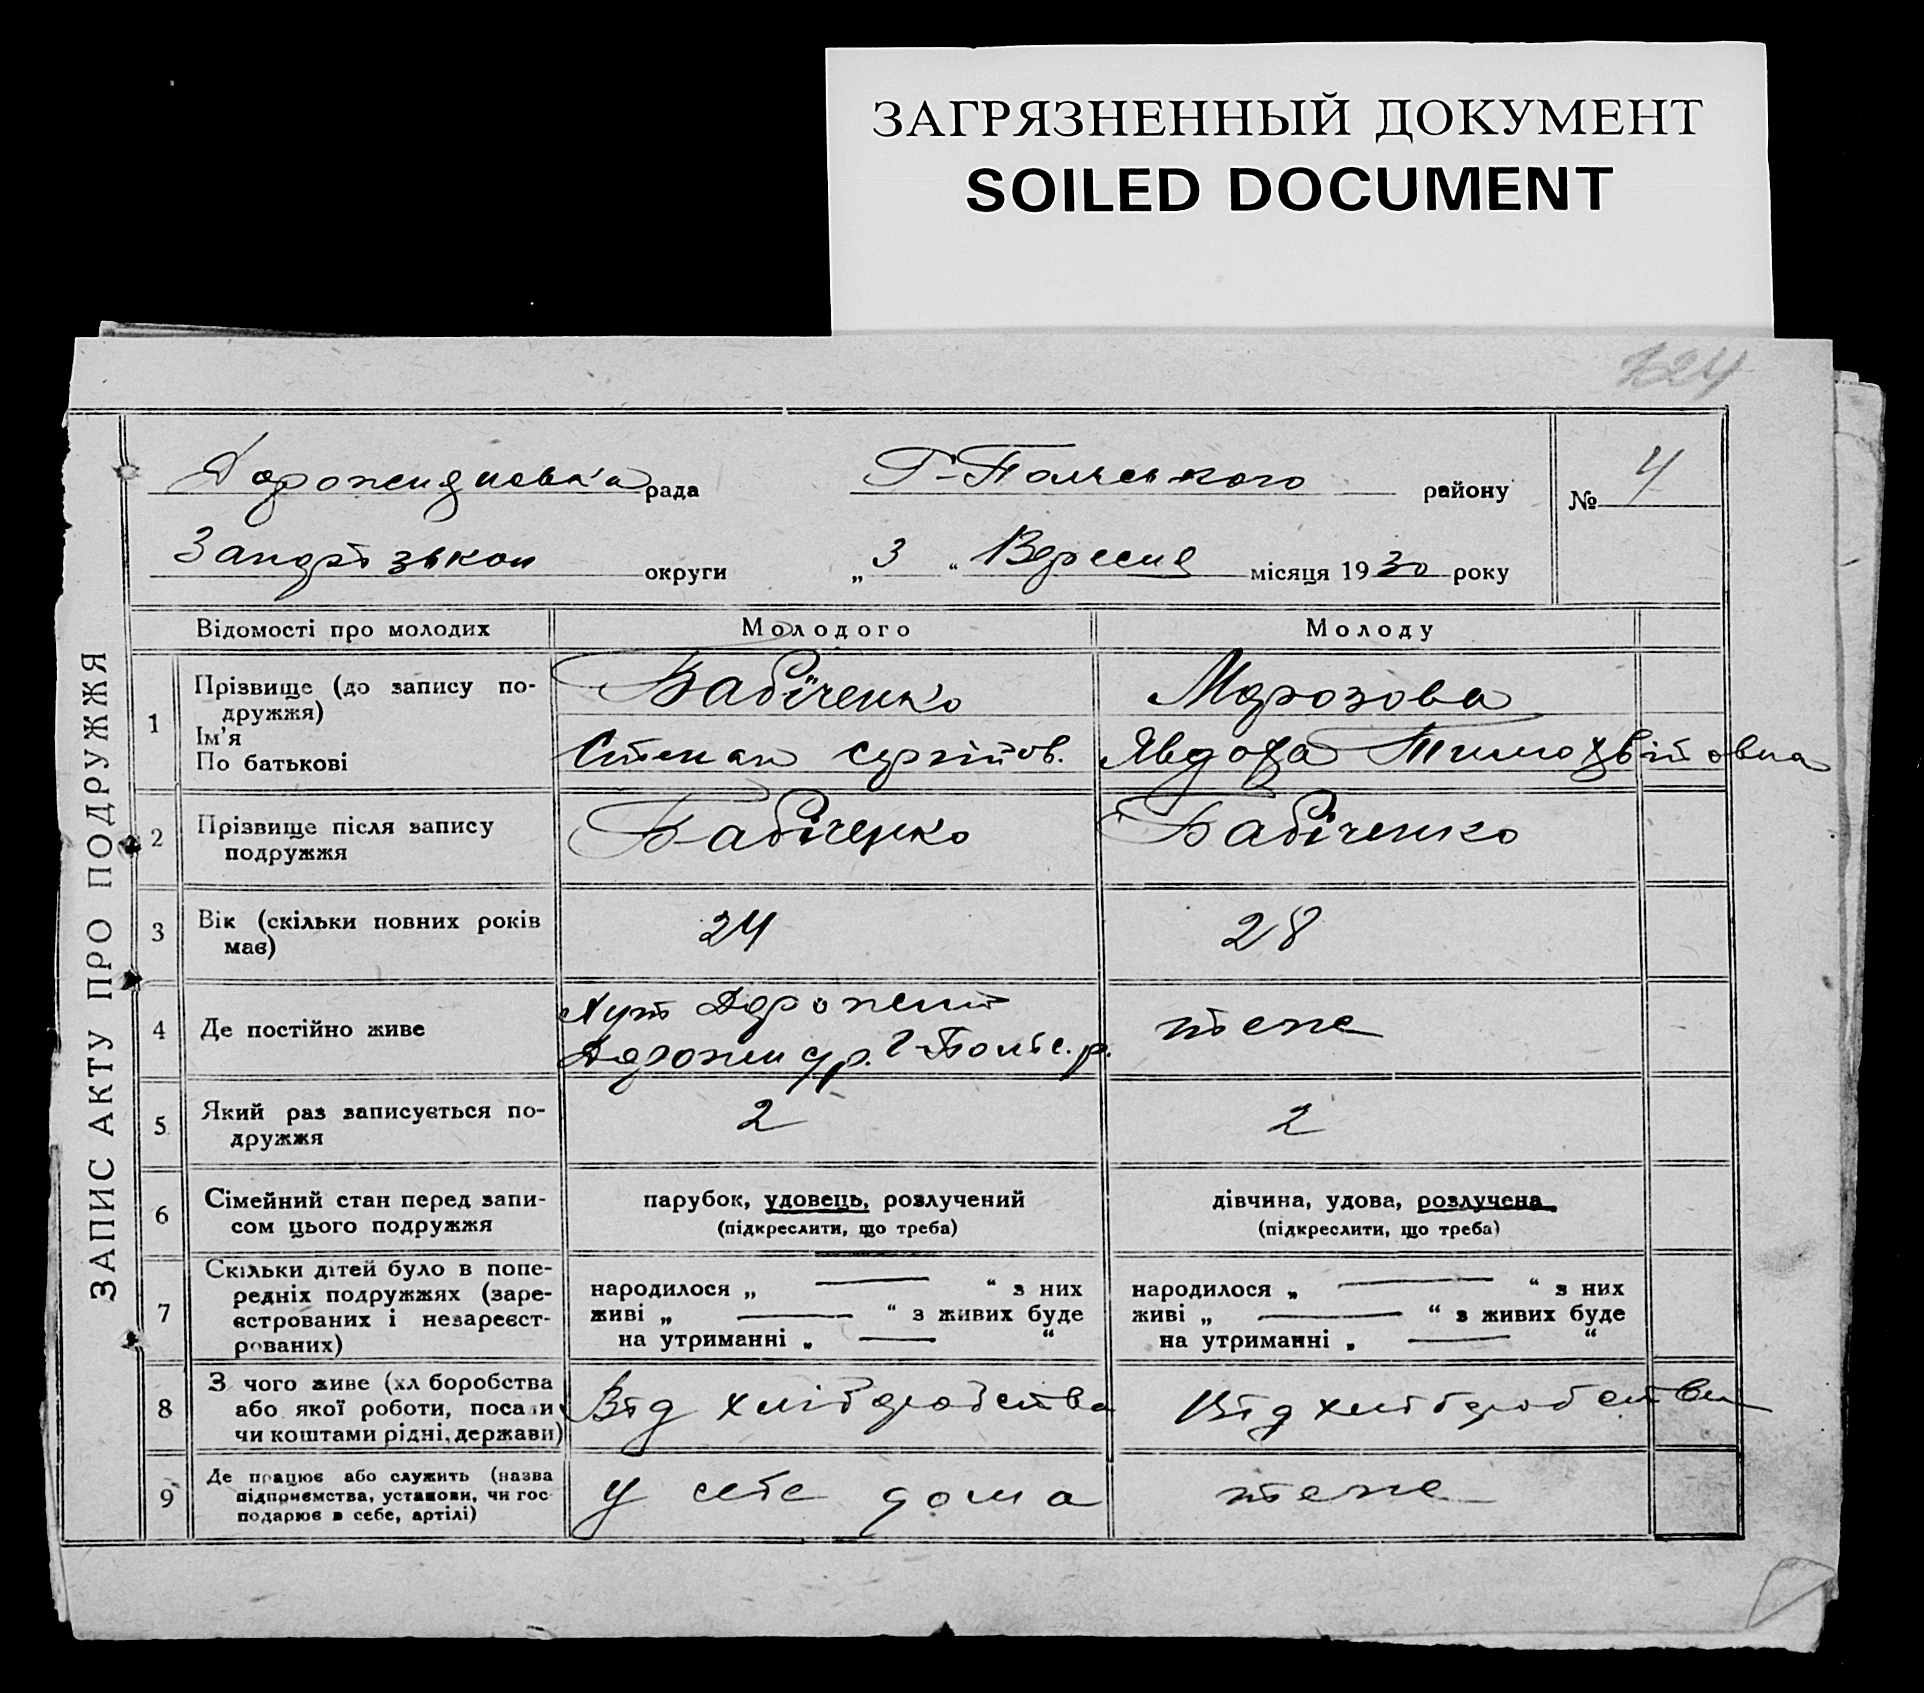 ЗАГРЯЗНЕННЫЙ ДОКУМЕНТ
SOILED DOCUMENT
124
ЗАПИС АКТУ ПРО ПОДРУЖЖЯ
рада Г-Польського району № 4
округи „3“ Вересня місяця 1930 року
Відомості про молодих Молодого Молоду
1 Прізвище (до запису по-
дружжя) Бабіченко Морозова
Ім'я
По батькові Степан Сергійов. Явдоха
2 Прізвище після запису
подружжя Бабіченко Бабіченко
3 Вік (скільки повних років
має) 24 28
4 Де постійно живе Хут теже
Г-Польс. р.
5 Який раз записується по-
дружжя 2 2
6 Сімейний стан перед запи-
сом цього подружжя парубок, удовець, розлучений дівчина, удова, розлучена
(підкреслити, що треба) (підкреслити, що треба)
7 Скільки дітей було в попе-
редніх подружжях (заре-
єстрованих і незареєст-
рованих)
народилося „ — “ з них народилося „ — “ з них
живі „ — “ з живих буде живі „ — “ з живих буде
на утриманні „ — “ на утриманні „ — “
8 З чого живе (хл боробства
або якої роботи, посади
чи коштами рідні, держави) Від хліборобства Від хліборобства
9 Де працює або служить (назва
підприємства, установи, чи гос
подарює в себе, артілі) у себе дома теже